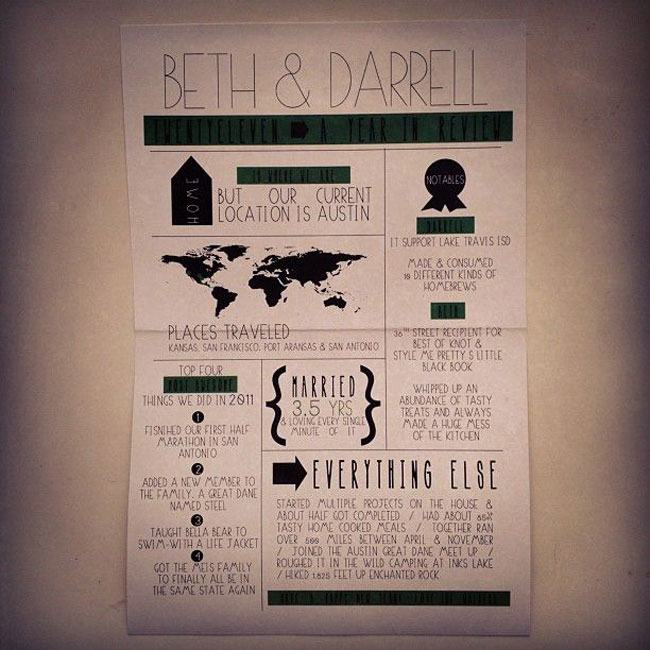 BETH & DARRELL
TWENTYELEVEN A YEAR IN REVIEW
HOME
IS WHERE WE ARE
BUT OUR CURRENT
LOCATION IS AUSTIN
PLACES TRAVELED
KANSAS, SAN FRANCISCO, PORT ARANSAS & SAN ANTONIO
NOTABLES
DARRELL
IT SUPPORT LAKE TRAVIS ISD
MADE & CONSUMED
10 DIFFERENT KINDS OF
HOMEBREWS
BETH
36TH STREET RECIPIENT FOR
BEST OF KNOT &
STYLE ME PRETTY'S LITTLE
BLACK BOOK
WHIPPED UP AN
ABUNDANCE OF TASTY
TREATS AND ALWAYS
MADE A HUGE MESS
OF THE KITCHEN
TOP FOUR
MOST AWESOME
THINGS WE DID IN 2011
1
FISNIHED OUR FIRST HALF
MARATHON IN SAN
ANTONIO
2
ADDED A NEW MEMBER TO
THE FAMILY, A GREAT DANE
NAMED STEEL
3
TAUGHT BELLA BEAR TO
SWIM-WITH A LIFE JACKET
4
GOT THE MEIS FAMILY
TO FINALLY ALL BE IN
THE SAME STATE AGAIN
MARRIED
3.5 YRS
& LOVING EVERY SINGLE
MINUTE OF IT
EVERYTHING ELSE
STARTED MULTIPLE PROJECTS ON THE HOUSE &
ABOUT HALF GOT COMPLETED / HAD ABOUT 85%
TASTY HOME COOKED MEALS / TOGETHER RAN
OVER 500 MILES BETWEEN APRIL & NOVEMBER
/ JOINED THE AUSTIN GREAT DANE MEET UP /
ROUGHED IT IN THE WILD CAMPING AT INKS LAKE
/ HIKED 1,825 FEET UP ENCHANTED ROCK